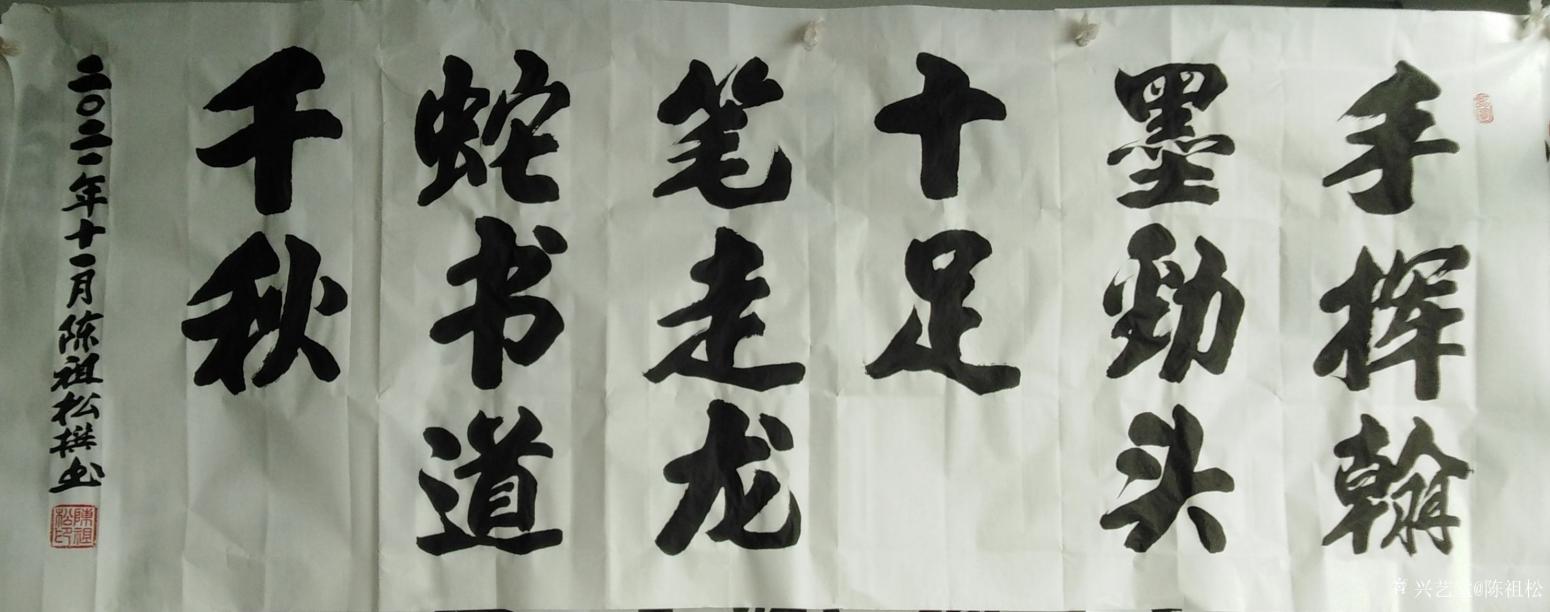 手挥翰
墨劲头
十足
笔走龙
蛇书道
千秋
二〇二一年十一月陈祖松撰书
陳祖松印
兴艺堂@陈祖松